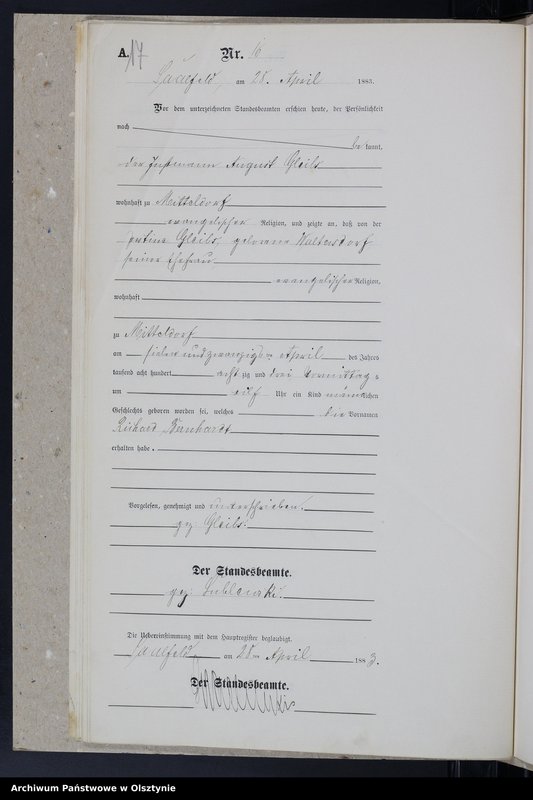 A. 17
Nr. 6
Saalfeld, am 28. April 1883.
Vor dem unterzeichneten Standesbeamten erschien heute, der Persönlichkeit
nach
be kannt,
der Instmann August Gleibs
wohnhaft zu Mitteldorf
evangelischer Religion, und zeigte an, daß von der
Gleibs, geborene Waltersdorf
seiner Ehefrau
evangelischer Religion,
wohnhaft
zu Mitteldorf
am sieben und zwanzigsten April des Jahres
tausend acht hundert acht zig und drei Vormittags
um Uhr ein Kind männlichen
Geschlechts geboren worden sei, welches die Vornamen
Richard Bernhardt
erhalten habe.
Vorgelesen, genehmigt und unterschrieben.
gez: Gleibs.
Der Standesbeamte.
gez:
Die Uebereinstimmung mit dem Hauptregister beglaubigt.
Saalfeld, am 28ten April 1883.
Der Standesbeamte.
Archiwum Państwowe w Olsztynie